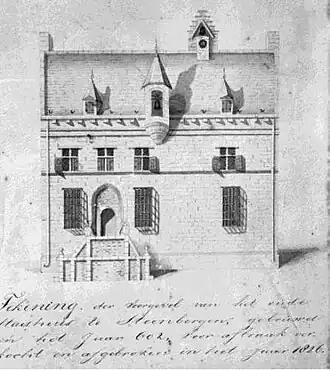 Tekening der voorgevel van het oude
Stadhuis te Steenbergen, gebouwd
in het Jaar 602, voor afbraak ver
kocht en afgebroken in het jaar 1826.